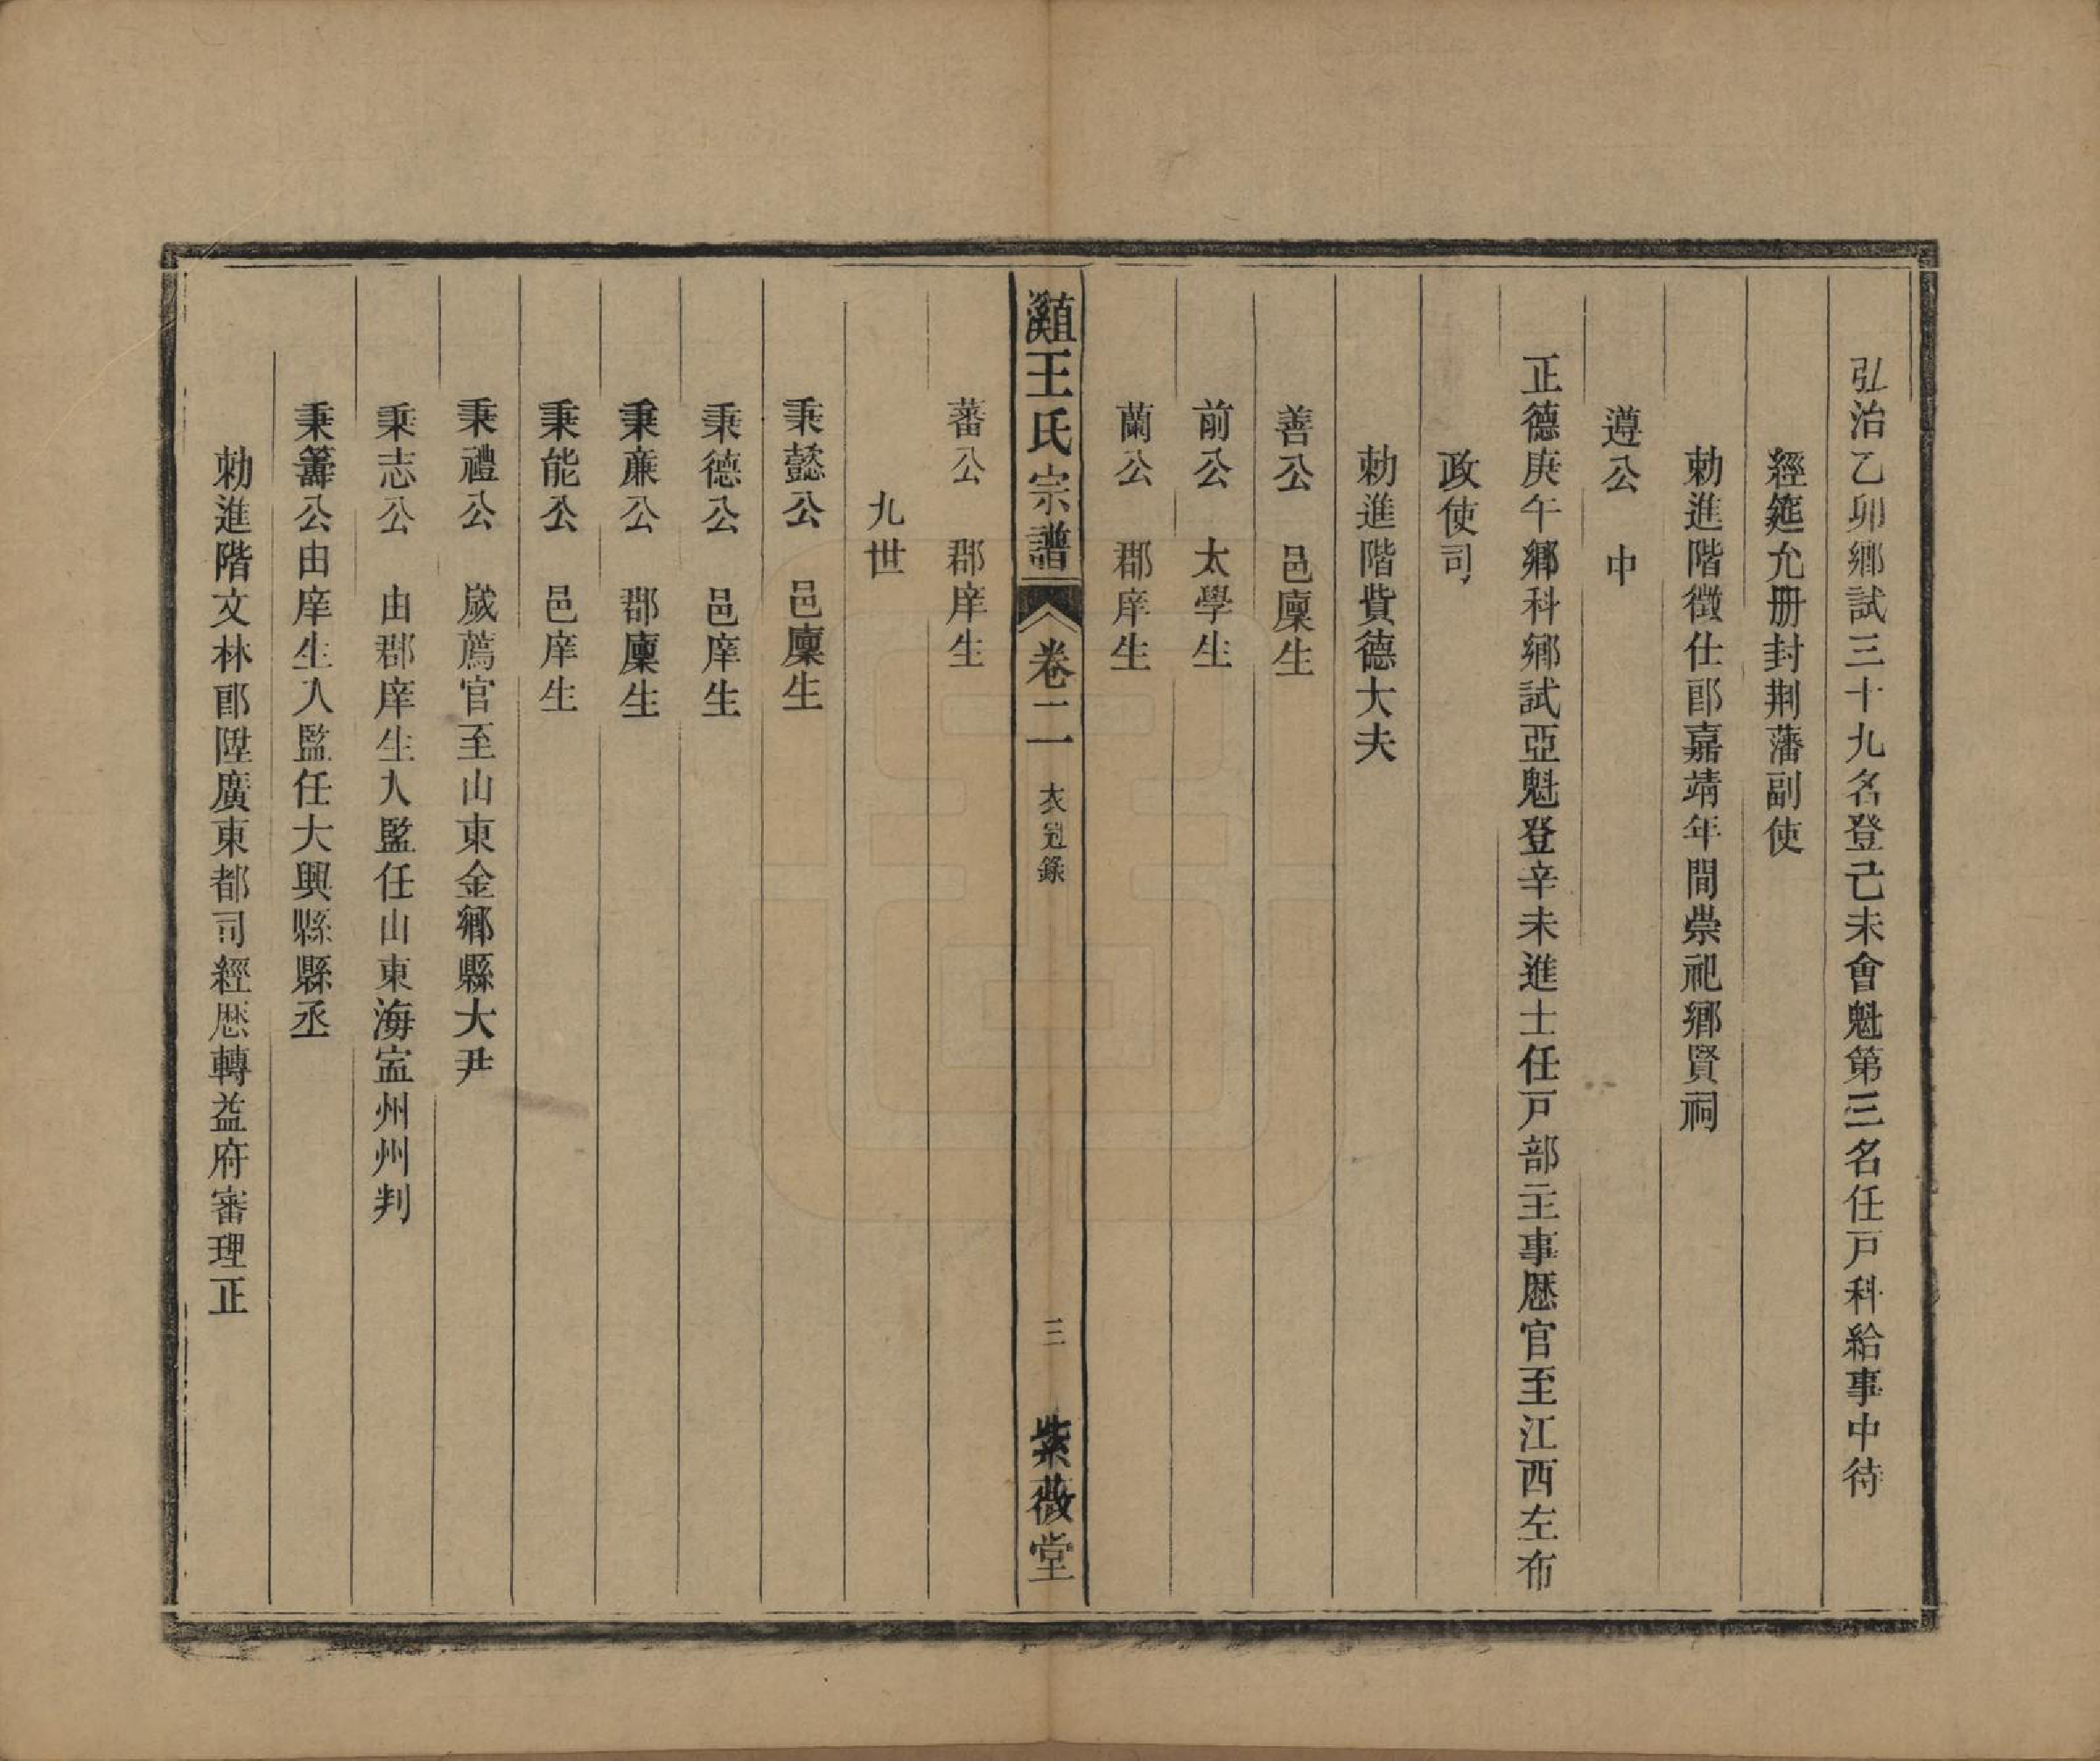 弘治乙卯鄉試三十九名登己未會魁第三名任戸科給事中待
經筵允册封荆藩副使
勅進階徵仕郎嘉靖年間崇祀鄉賢祠
遵公　中
正德庚午鄉科鄉試亞魁登辛未進士任戸部主事歷官至江西左布
政使司
勅進階貲德大夫
善公　邑廩生
前公　太學生
蘭公　郡庠生
王氏宗譜　卷二　衣冠錄　三　紫薇堂
蕃公　郡庠生
九世
秉懿公　邑廩生
秉德公　邑庠生
秉亷公　郡廩生
秉能公　邑庠生
秉禮公　歲薦官至山東金鄉縣大尹
秉志公　由郡庠生入監任山東海寍州州判
秉籌公由庠生入監任大興縣縣丞
勅進階文林郎陞廣東都司經歷轉益府審理正